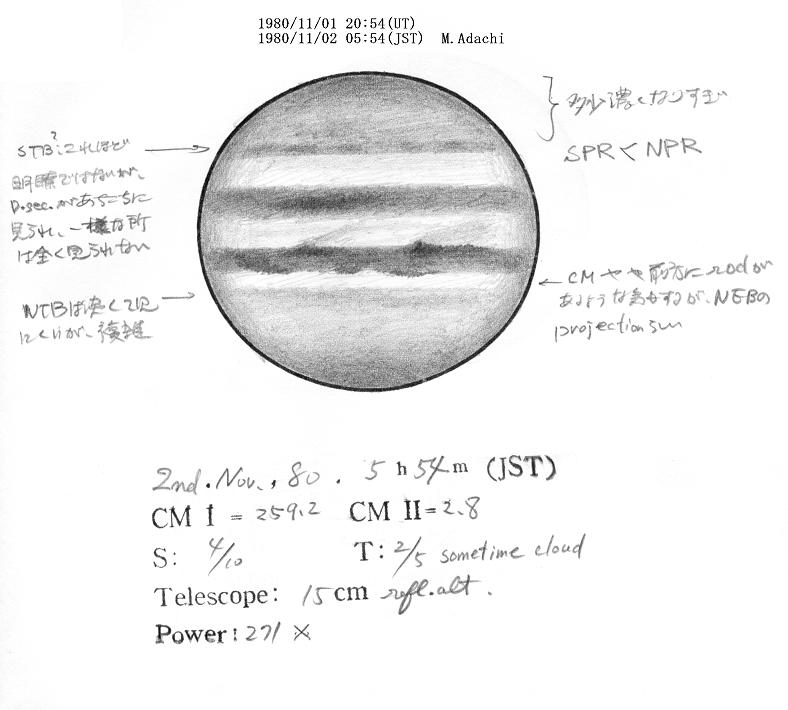 1980/11/01 20:54(UT)
1980/11/02 05:54(JST) M.Adachi
多少濃くなりすぎ
SPR<NPR
STB?これほど
明瞭ではないが、
D.sec.があちこちに
見られ、一様な所
は全く見られない
NTBは淡くて見
にくいが、複雑
CMやや前方にrodが
あるような気がするが、NEBの
projection
2nd.Nov.,80. 5h54m (JST)
CM I = 259.2 CM II=2.8
S: 4/10 T: 2/5 sometime cloud
Telescope: 15cm refl.alt.
Power: 271×